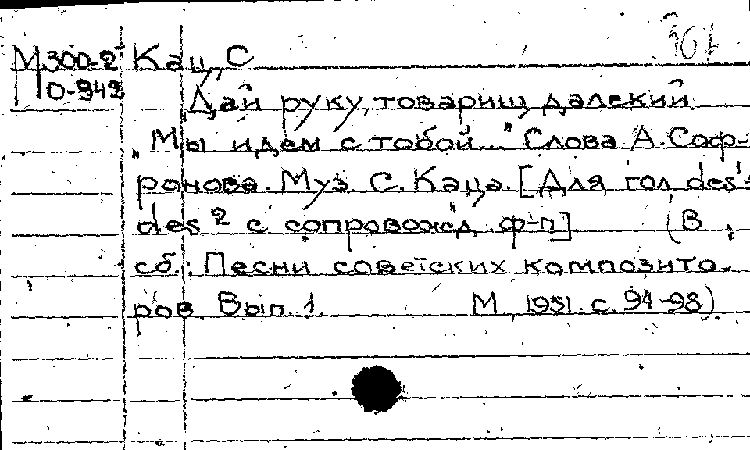 М300-2 Кац, С
10-942
Дай руку, товарищ далекий
"Мы идем с тобой..." Слова А. Соф-
ронова. Муз. С. Каца. [Для гол. des¹-
des² с сопровожд. ф-п] (В
сб.: Песни советских композито-
ров. Вып. 1. М., 1951. с. 94-98)